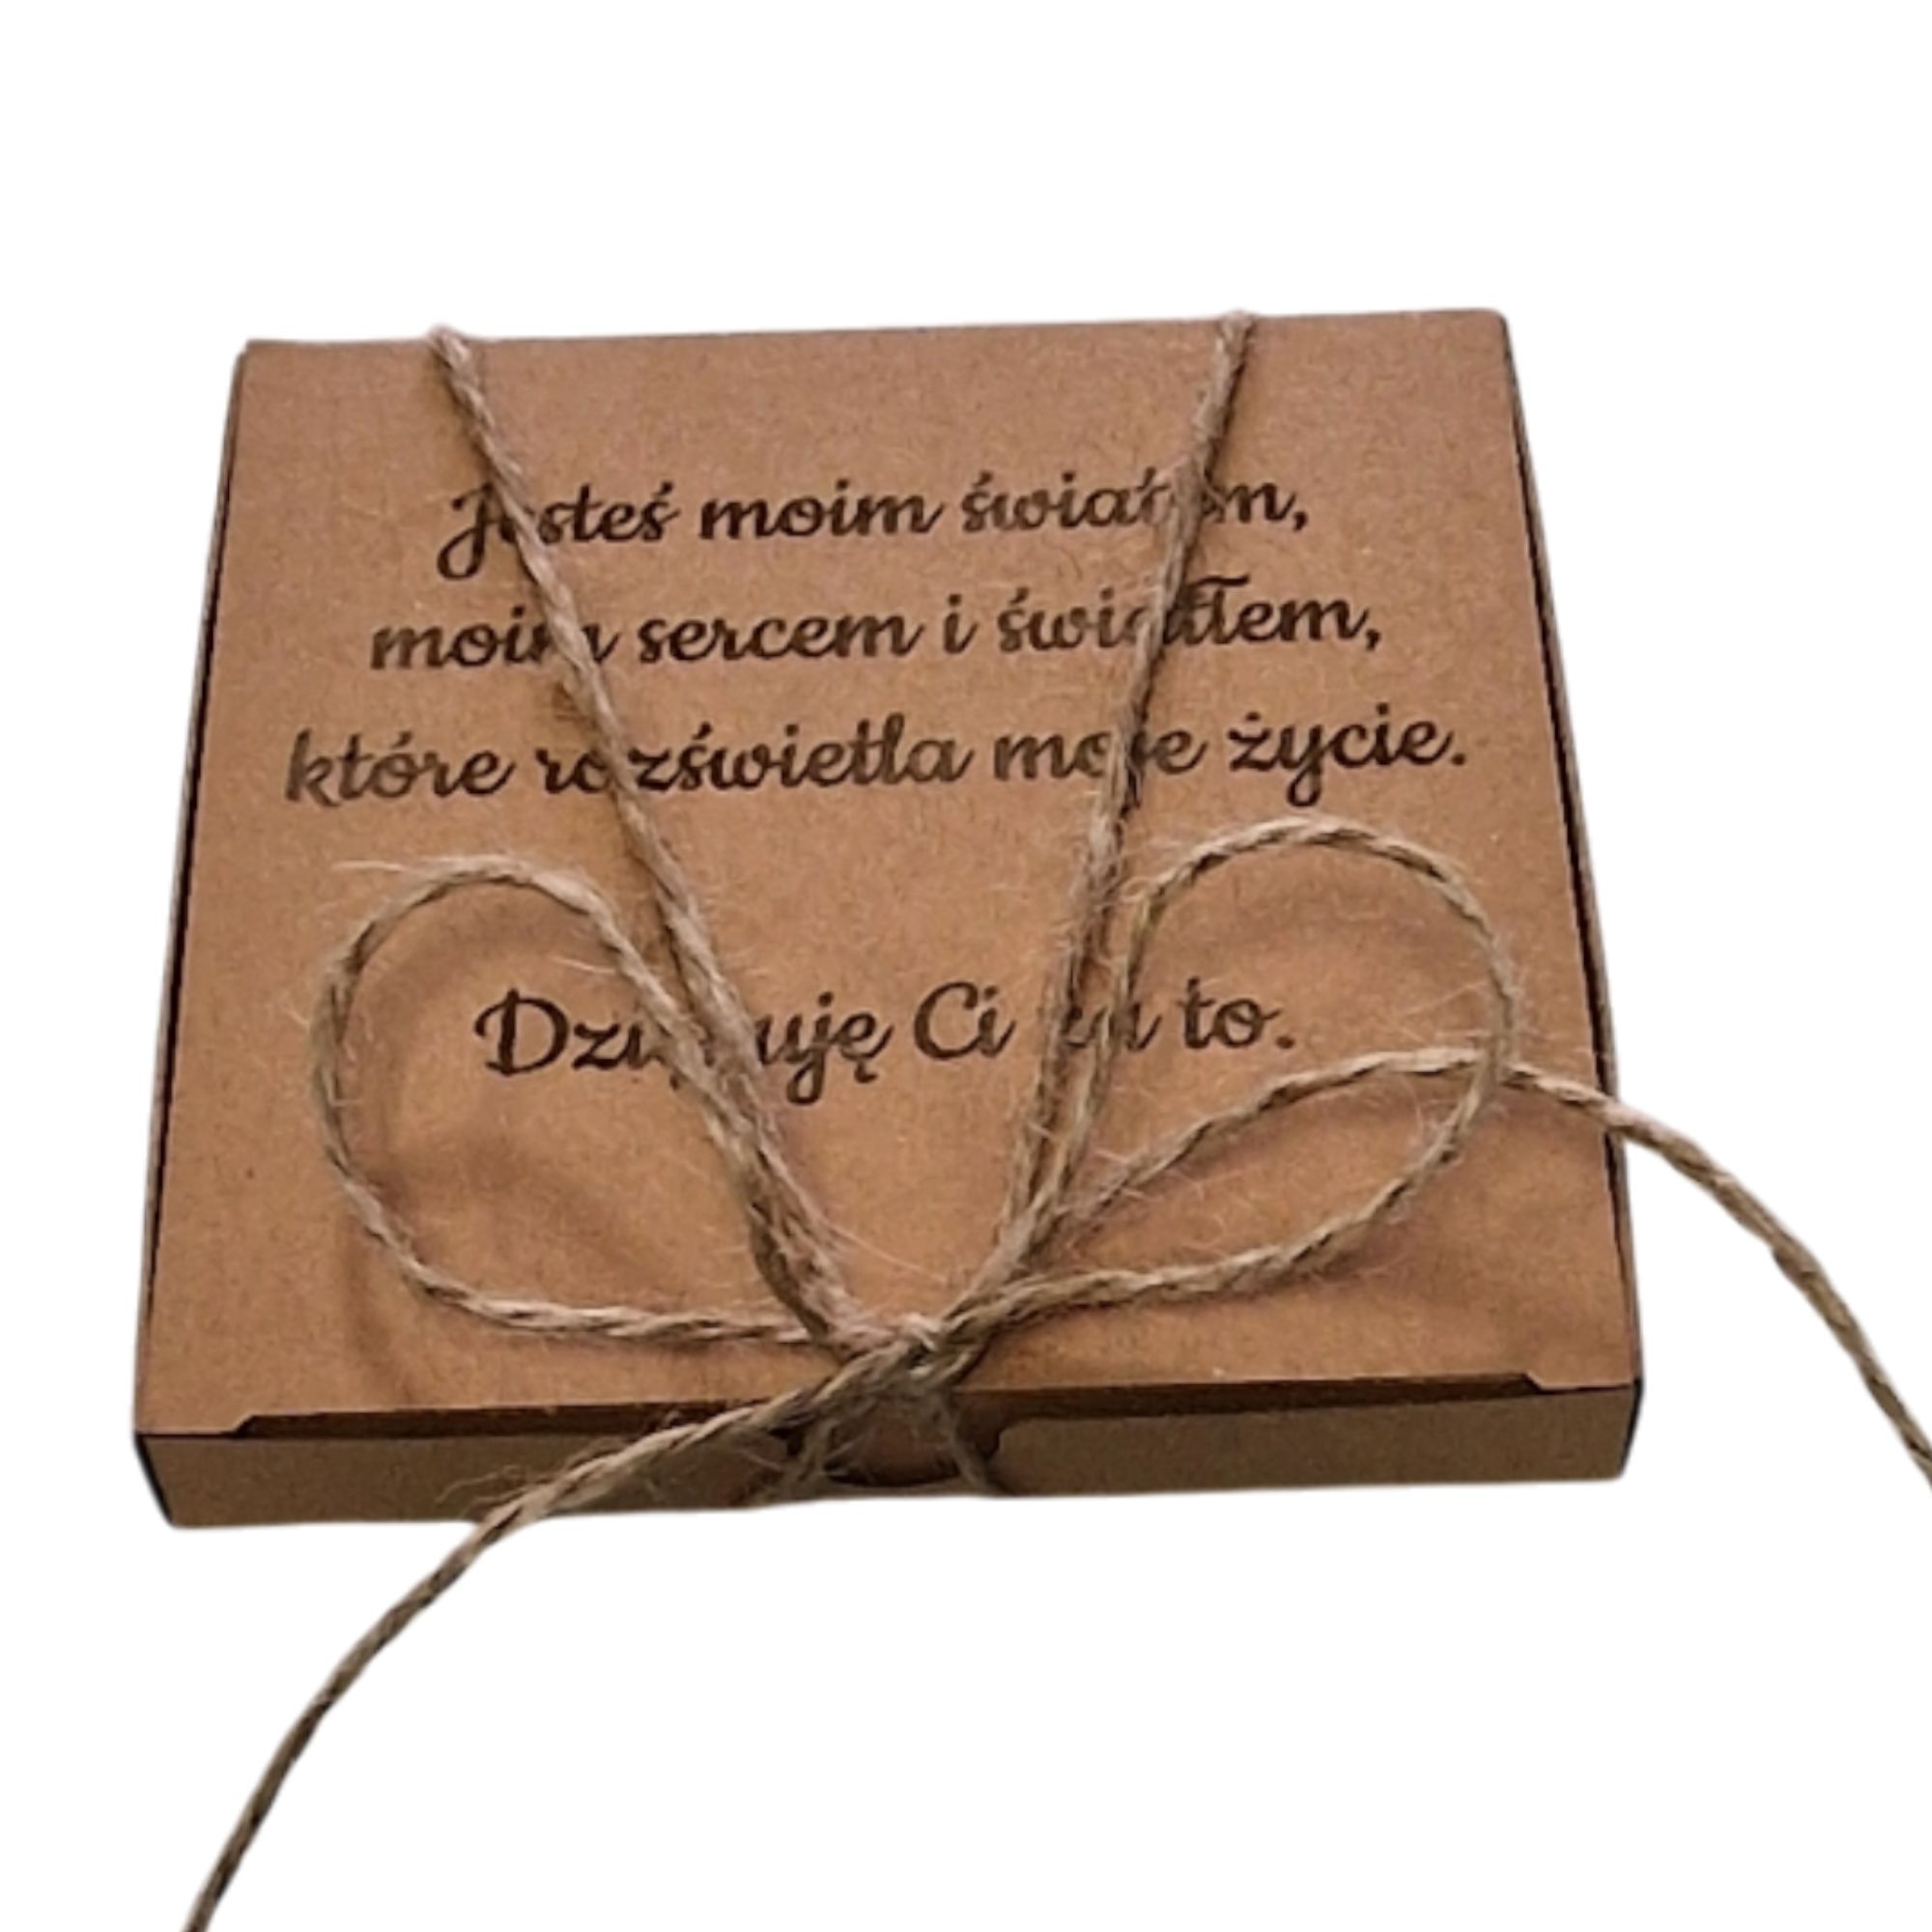 Jesteś moim światem,
moim sercem i światłem,
które rozświetla moje życie.
Dziękuję Ci za to.